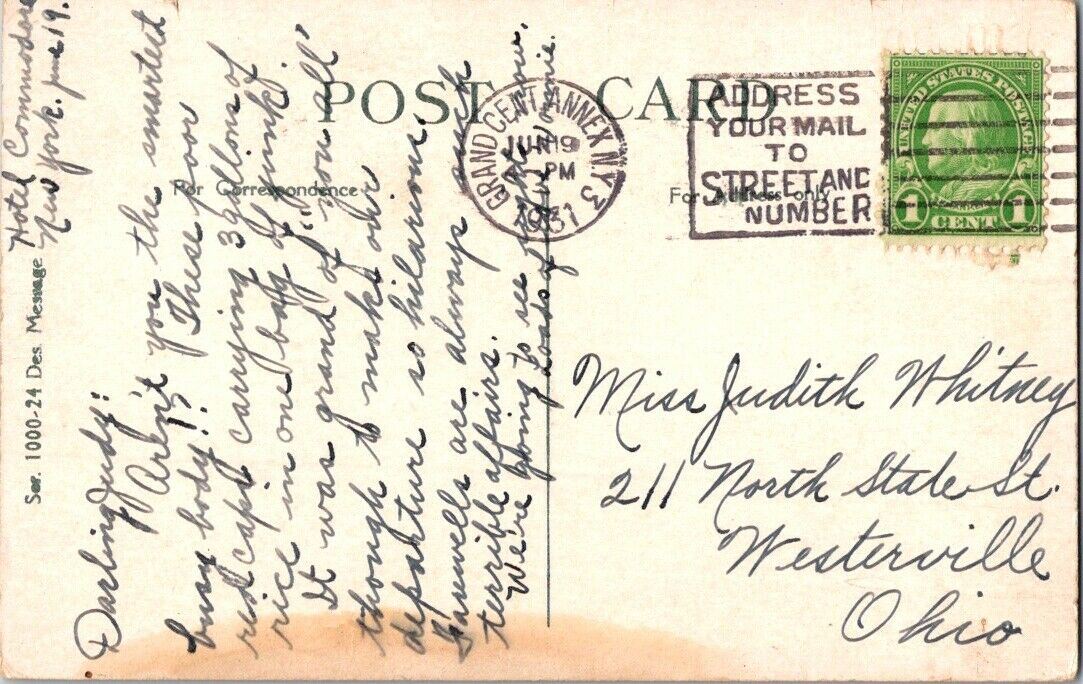 Hotel Commodore
New York. June 19.
Darling Judy:
Aren't you the smartest
busy body!? These poor
red caps carrying 3 gallons of
rice in one bag of junk!
It was grand of "you all"
though to make our
departure so hilarious,
Farewells are always such
terrible affairs.
We're going to see
Loads of love,
POST CARD
For Correspondence
For Address only
Ser. 1000-24 Des. Message
GRAND CENT. ANNEX N.Y.
JUN 19
PM
1931
3
ADDRESS
YOUR MAIL
TO
STREET AND
NUMBER
UNITED STATES POSTAGE
1 CENT 1
Miss Judith Whitney
211 North State St.
Westerville
Ohio